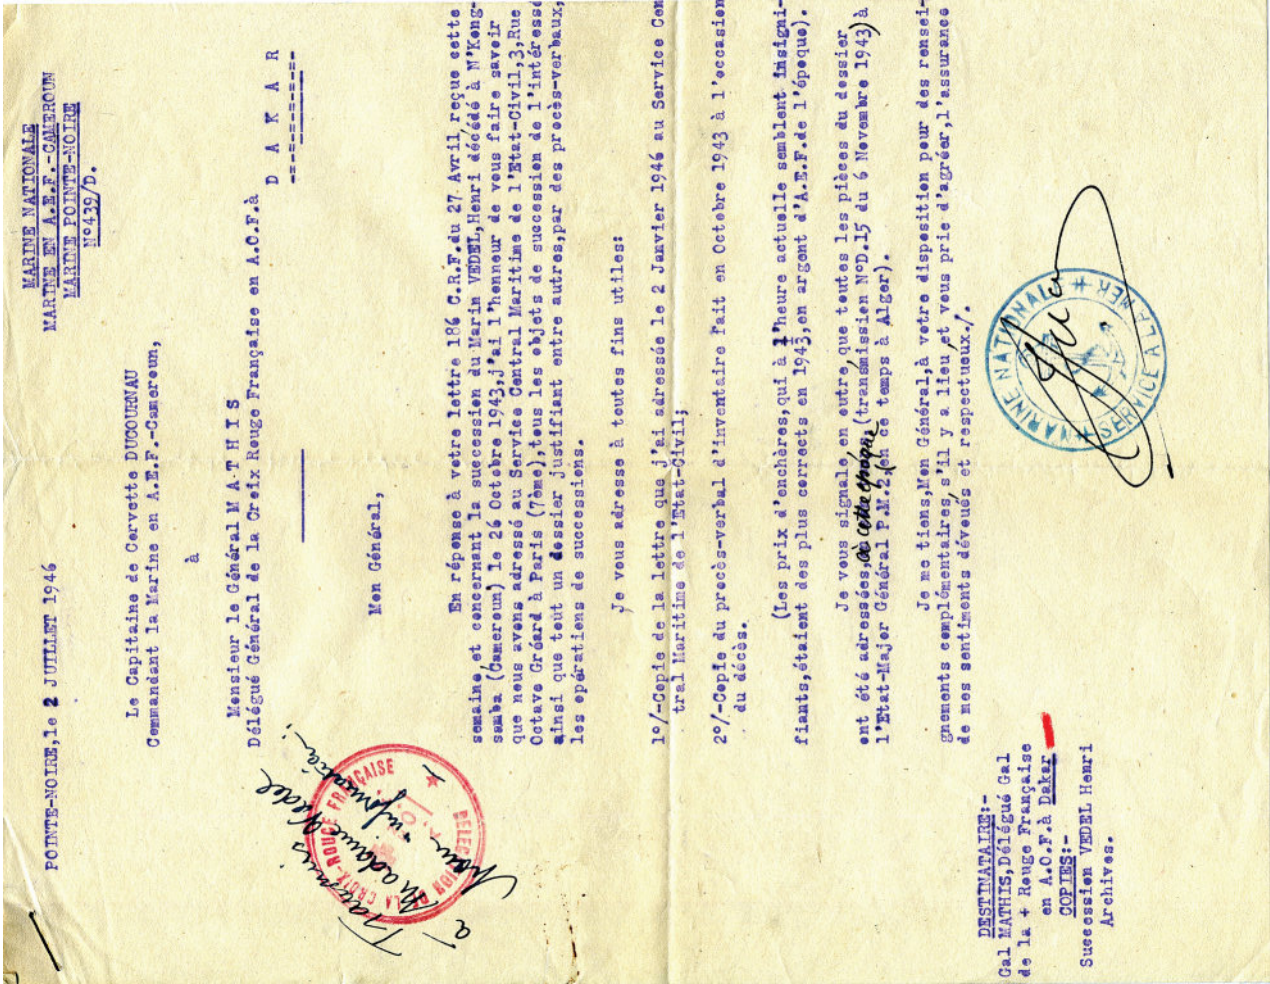 MARINE NATIONALE
MARINE EN A.E.F.-CAMEROUN
MARINE POINTE-NOIRE
N°439/D.
POINTE-NOIRE, le 2 JUILLET 1946
Le Capitaine de Corvette DUCOURNAU
Commandant la Marine en A.E.F.-Cameroun,
à
Monsieur le Général M A T H I S
Délégué Général de la Croix Rouge Française en A.O.F. à
D A K A R
-=-=-=-=-=-=-
Mon Général,
En réponse à votre lettre 186 C.R.F. du 27 Avril reçue cette
semaine, et concernant la succession du Marin VEDEL, Henri décédé à M'Kong-
samba (Cameroun) le 26 Octobre 1943, j'ai l'honneur de vous faire savoir
que nous avons adressé au Service Central Maritime de l'Etat-Civil, 3, Rue
Octave Gréard à Paris (7ème), tous les objets de succession de l'intéressé
ainsi que tout un dossier justifiant entre autres, par des procès-verbaux,
les opérations de successions.
Je vous adresse à toutes fins utiles:
1°/-Copie de la lettre que j'ai adressée le 2 Janvier 1946 au Service Cen
tral Maritime de l'Etat-Civil;
2°/-Copie du procès-verbal d'inventaire fait en Octobre 1943 à l'occasion
du décès.
(Les prix d'enchères, qui à l'heure actuelle semblent insigni-
fiants, étaient des plus corrects en 1943, en argent d'A.E.F. de l'époque).
Je vous signale, en outre, que toutes les pièces du dossier
ont été adressées, à cette époque (transmission N°D.15 du 6 Novembre 1943) à
l'Etat-Major Général P.M.2, en ce temps à Alger).
Je me tiens, Mon Général, à votre disposition pour des rensei-
gnements complémentaires, s'il y a lieu, et vous prie d'agréer, l'assurance
de mes sentiments dévoués et respectueux./.
MARINE NATIONALE
SERVICE A LA MER
Transmis
à Madame Vedel
Pour information
DELEGATION DE LA CROIX-ROUGE FRANÇAISE
DESTINATAIRE:-
Gal MATHIS, Délégué Gal
de la + Rouge Française
en A.O.F. à Dakar
COPIES:-
Succession VEDEL Henri
Archives.